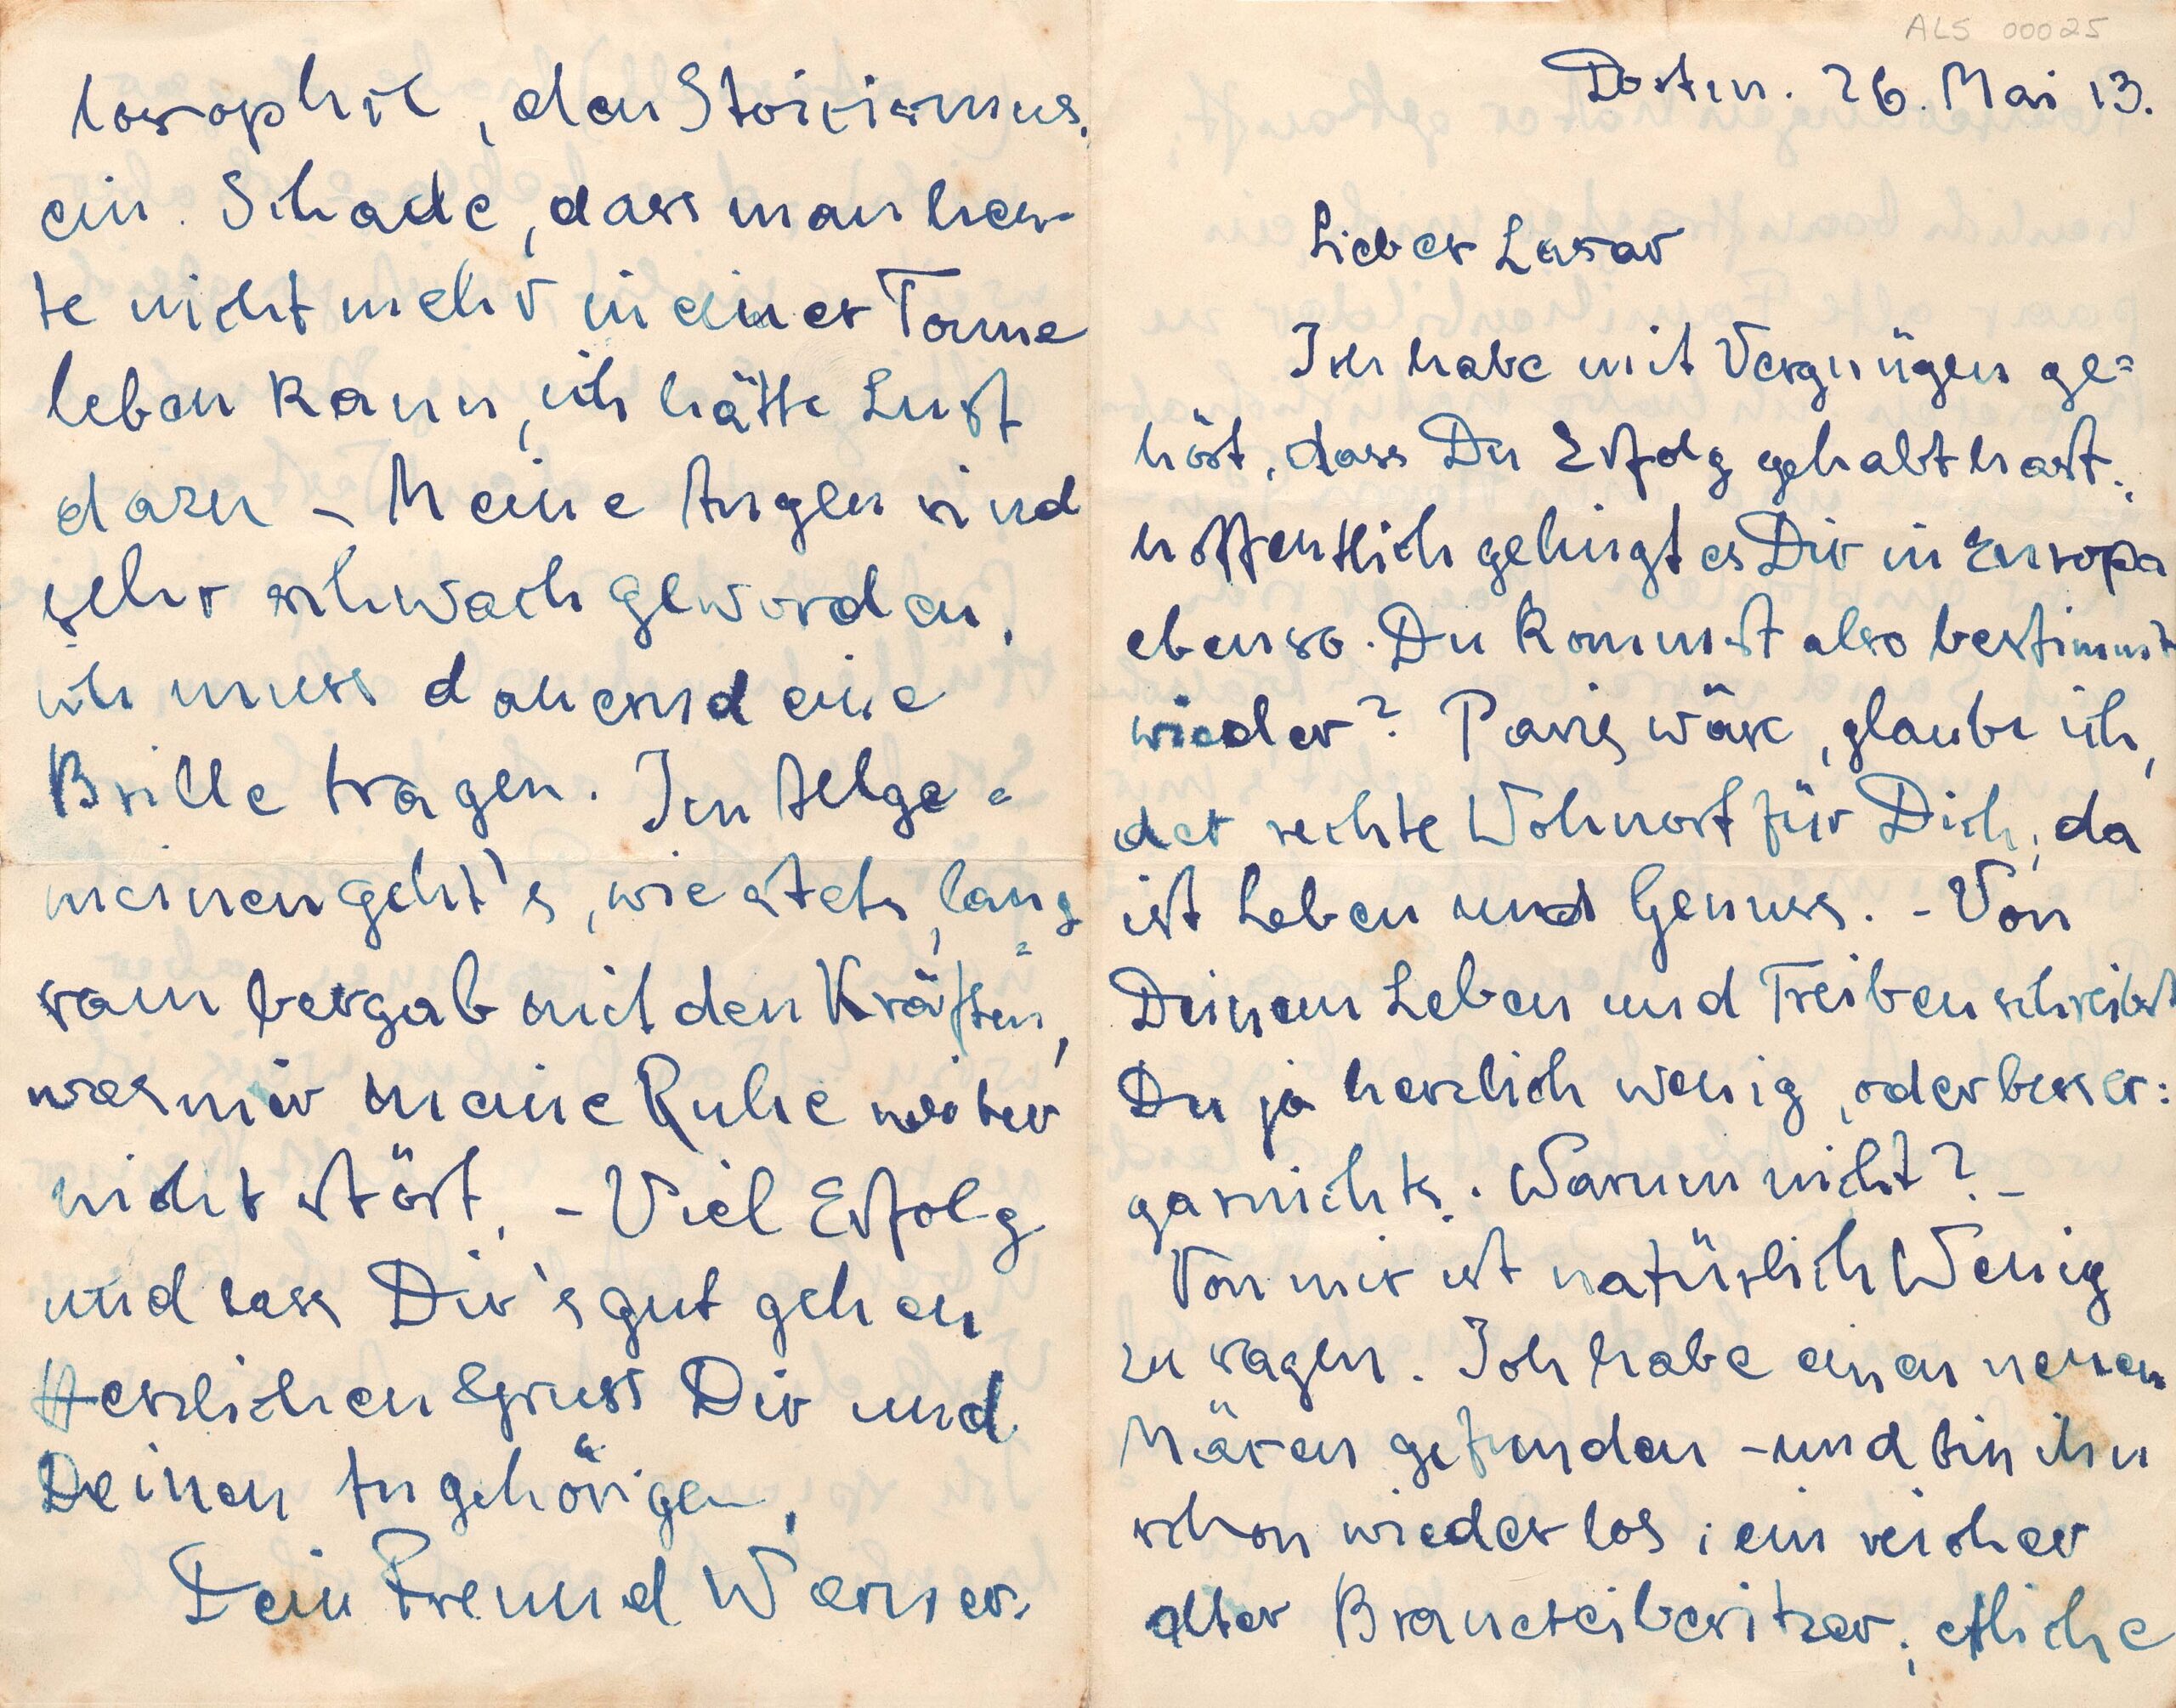 ALS 00025
Dorten. 26. Mai 13.
Lieber Lasar
Ich habe mit Vergnügen ge=
hört, dass Du Erfolg gehabt hast.;
hoffentlich gelingt es Dir in Europa
ebenso. Du kommst also bestimmt
wieder? Paris wäre, glaube ich,
der rechte Wohnort für Dich; da
ist Leben und Genuss. - Von
Deinem Leben und Treiben schreibst
Du ja herzlich wenig, oder besser:
garnichts. Warum nicht? -
Von mir ist natürlich Wenig
zu sagen. Ich habe einen neuen
Mären gefunden - und bin ihn
schon wieder los; ein reicher
alter Brauereibesitzer; etliche
losophie, den Stoicismus,
ein. Schade, dass man heu-
te nicht mehr in einer Tonne
leben kann, ich hätte Lust
dazu - Meine Augen sind
sehr schwach geworden,
ich muss dauernd eine
Brille tragen. Im Allge=
meinen geht's, wie stets, lang=
sam bergab mit den Kräften,
was mir meine Ruhe weiter
nicht stört. - Viel Erfolg
und lass Dir's gut gehen
Herzlichen Gruss Dir und
Deinen Angehörigen,
Dein Freund Werner.